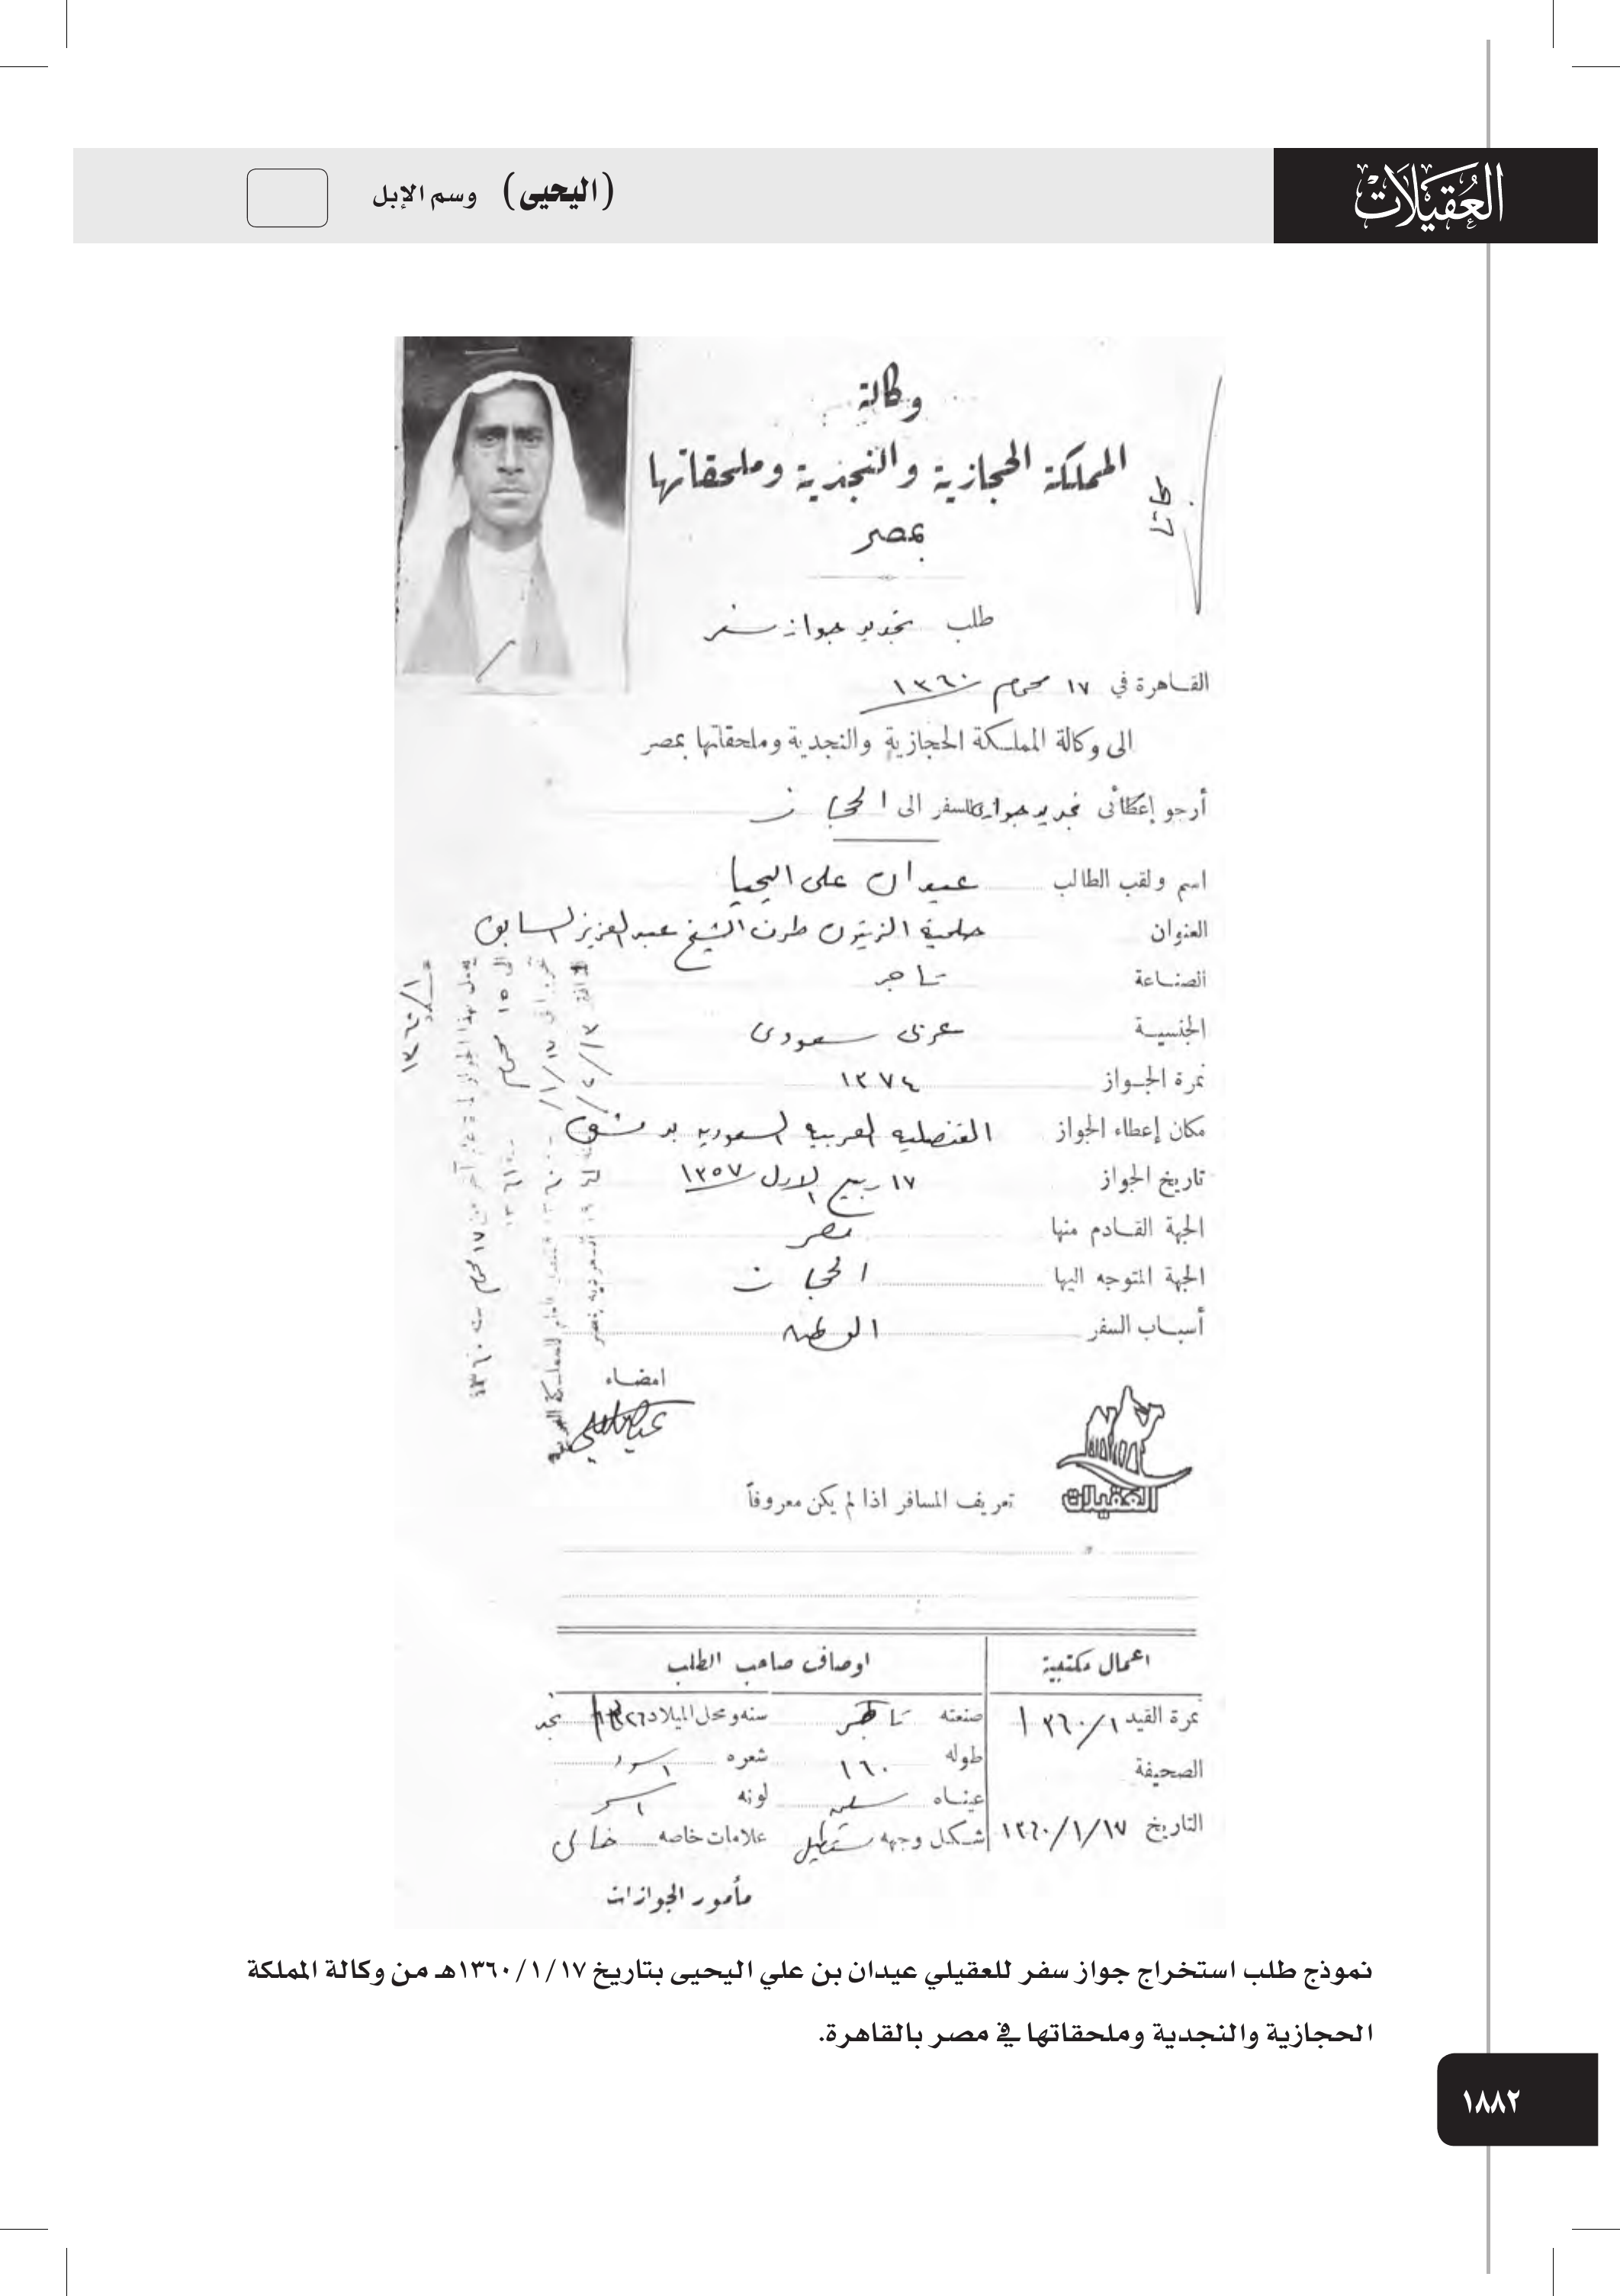 العُقَيْلَاتْ
(اليحيى) وسم الإبل
وكالة
المملكة الحجازية والنجدية وملحقاتها
بمصر
طلب تجديد جواز سفر
القاهرة في ١٧ محرم ١٣٦٠
الى وكالة المملكة الحجازية والنجدية وملحقاتها بمصر
أرجو إعطائى تجديد جواز للسفر الى الحجاز
اسم ولقب الطالب عيدان على اليحيا
العنوان حلمية الزيتون طرف الشيخ عبد العزيز السابق
الصناعة تاجر
الجنسية عربى سعودى
نمرة الجواز ١٢٧٤
مكان إعطاء الجواز القنصليه العربيه السعوديه بدمشق
تاريخ الجواز ١٧ ربيع الاول ١٣٥٧
الجهة القادم منها مصر
الجهة المتوجه اليها الحجاز
أسباب السفر
امضاء
العقيلات
تعريف المسافر اذا لم يكن معروفاً
اعمال مكتبية اوصاف صاحب الطلب
نمرة القيد ١٣٦٠/١ صنعته تاجر سنه ومحل الميلاد نجد
الصحيفة طوله ١٦٠ شعره اسود
عيناه لونه اسمر
التاريخ ١٣٦٠/١/١٧ شكل وجهه مستطيل علامات خاصه خالى
مأمور الجوازات
نموذج طلب استخراج جواز سفر للعقيلي عيدان بن علي اليحيى بتاريخ ١٣٦٠/١/١٧هـ من وكالة المملكة
الحجازية والنجدية وملحقاتها في مصر بالقاهرة.
١٨٨٢